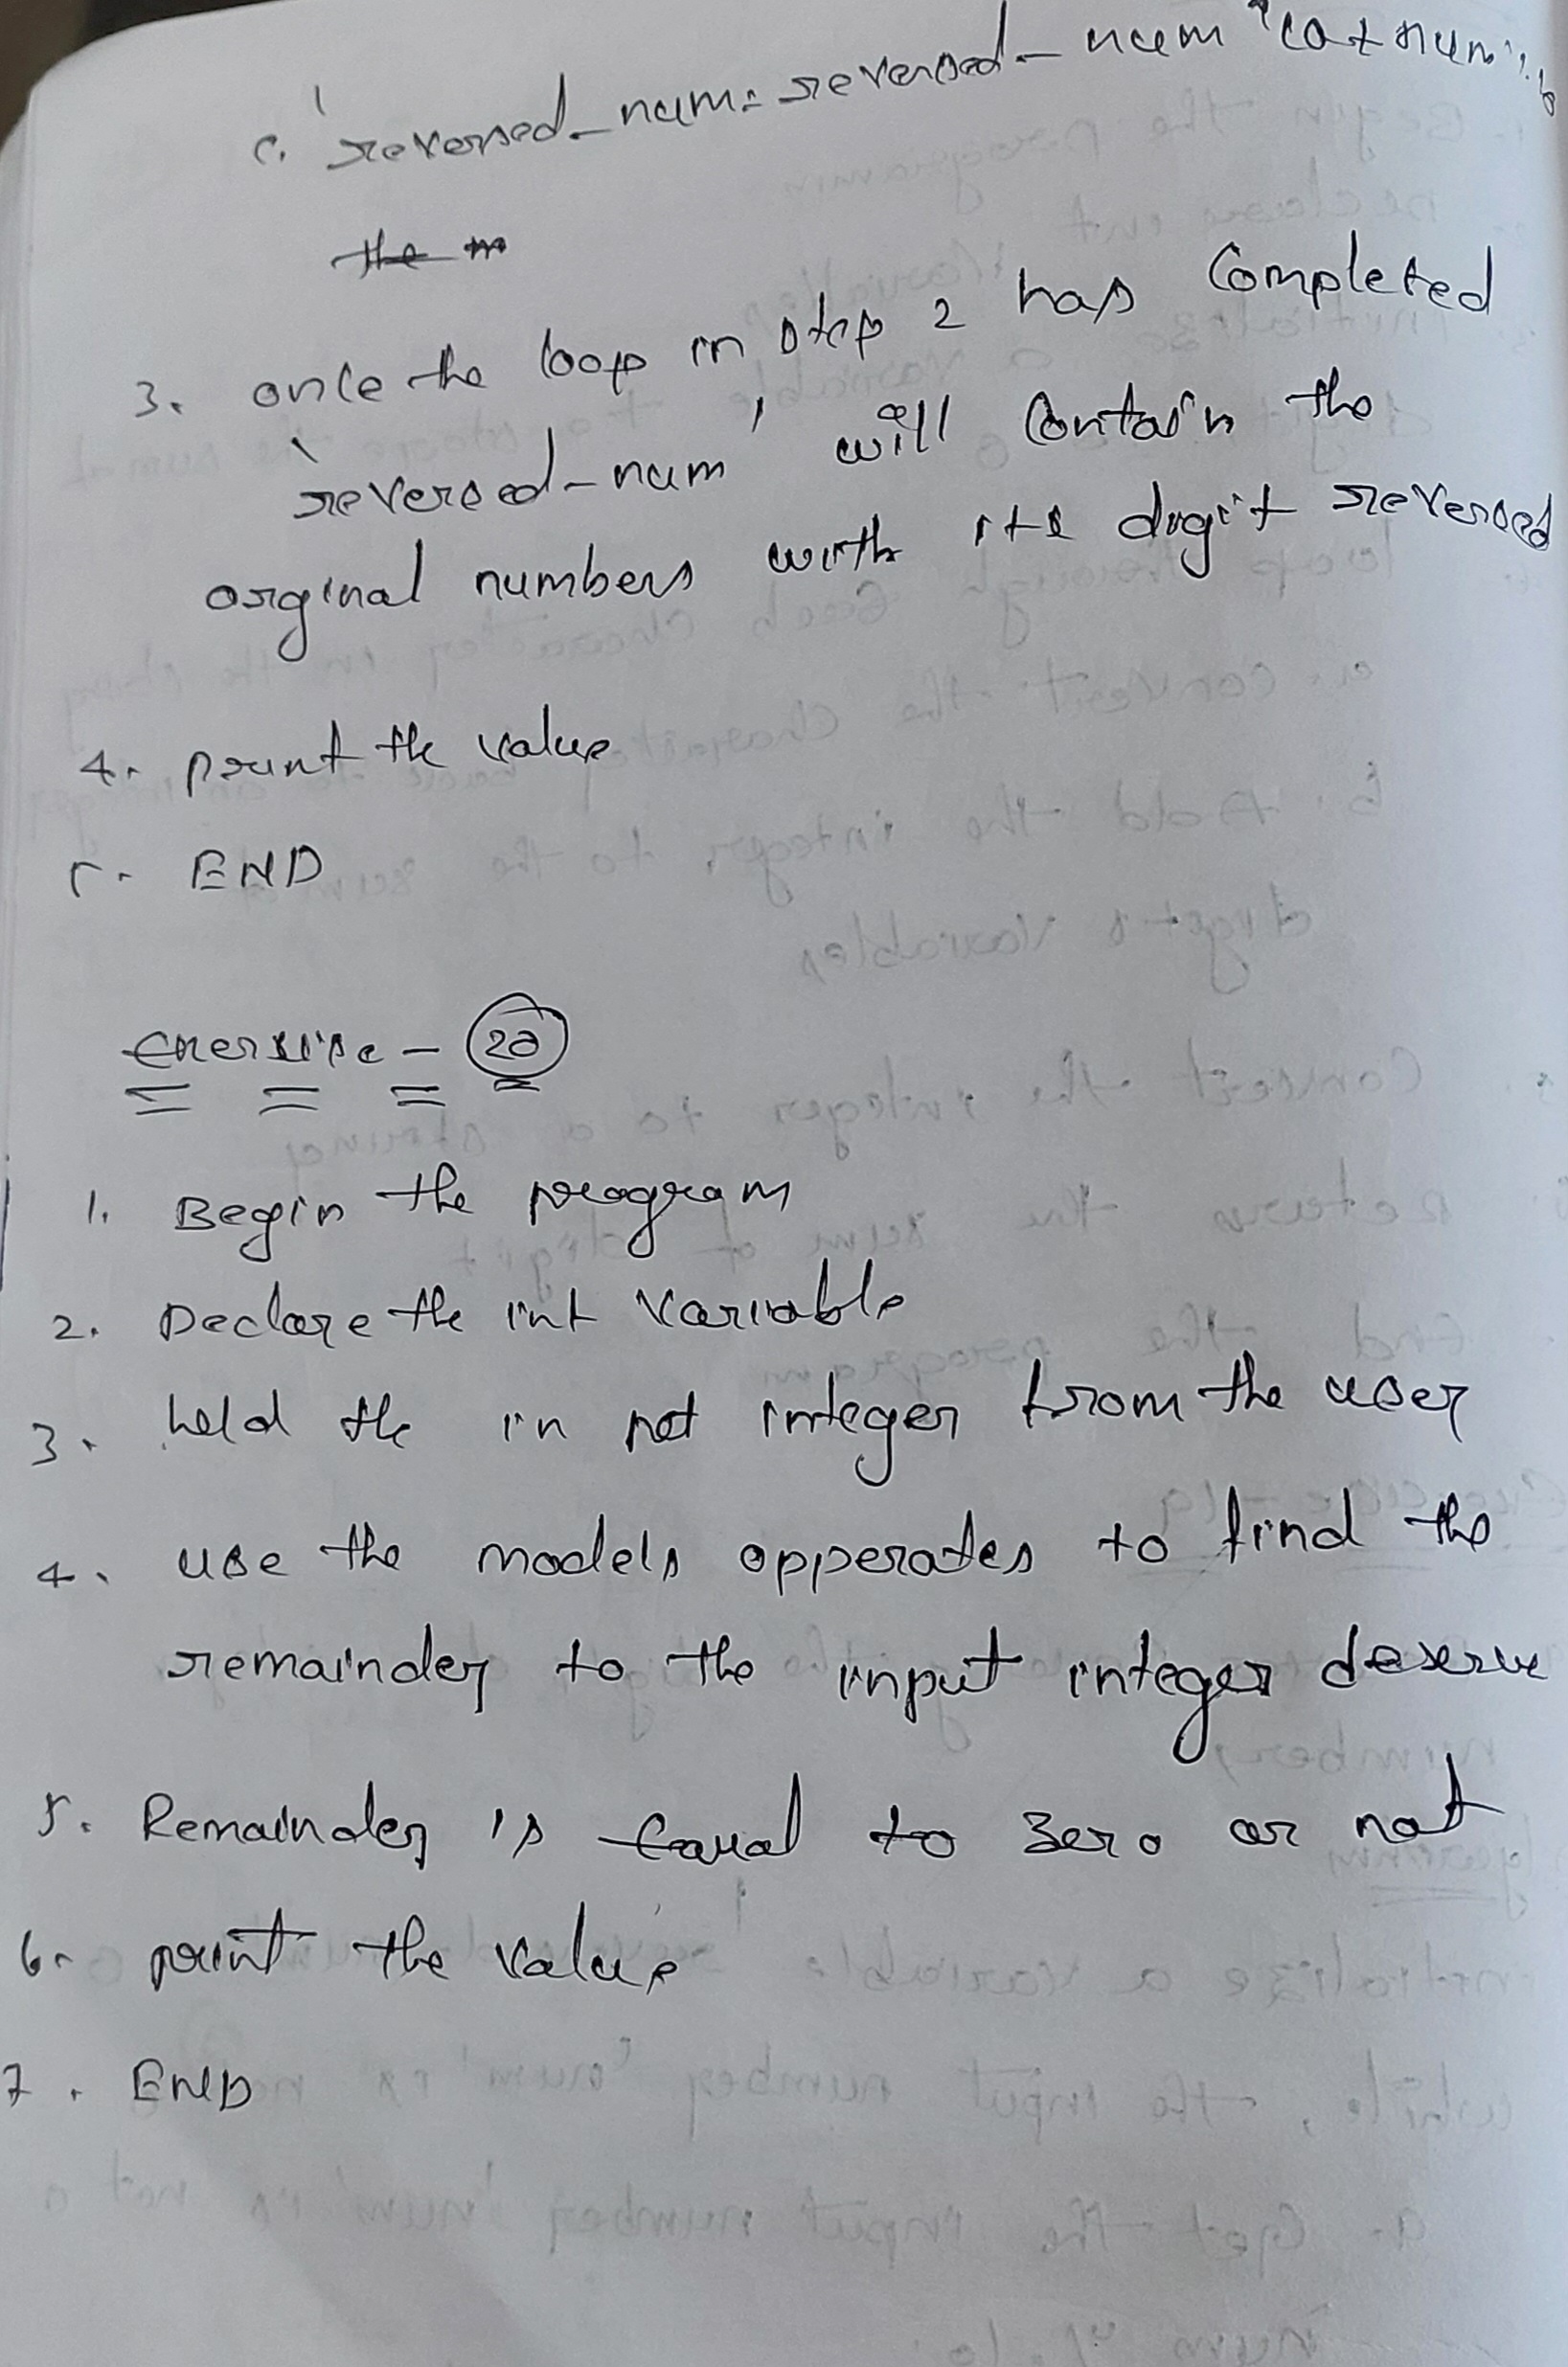 c. 'reversed_num = reversed_num
the m
3. once the loop in step 2 has Completed
'reversed-num' will Contain the
orginal numbers with its dogit reversed
4. print the value
5. END
Exersise - 20
1. Begin the program
2. Declare the int Variable
3. held the in pot integer from the user
4. use the models opperates to find the
remainder to the input integer deserve
5. Remainder is Equal to Zero or not
6. print the value
7. END